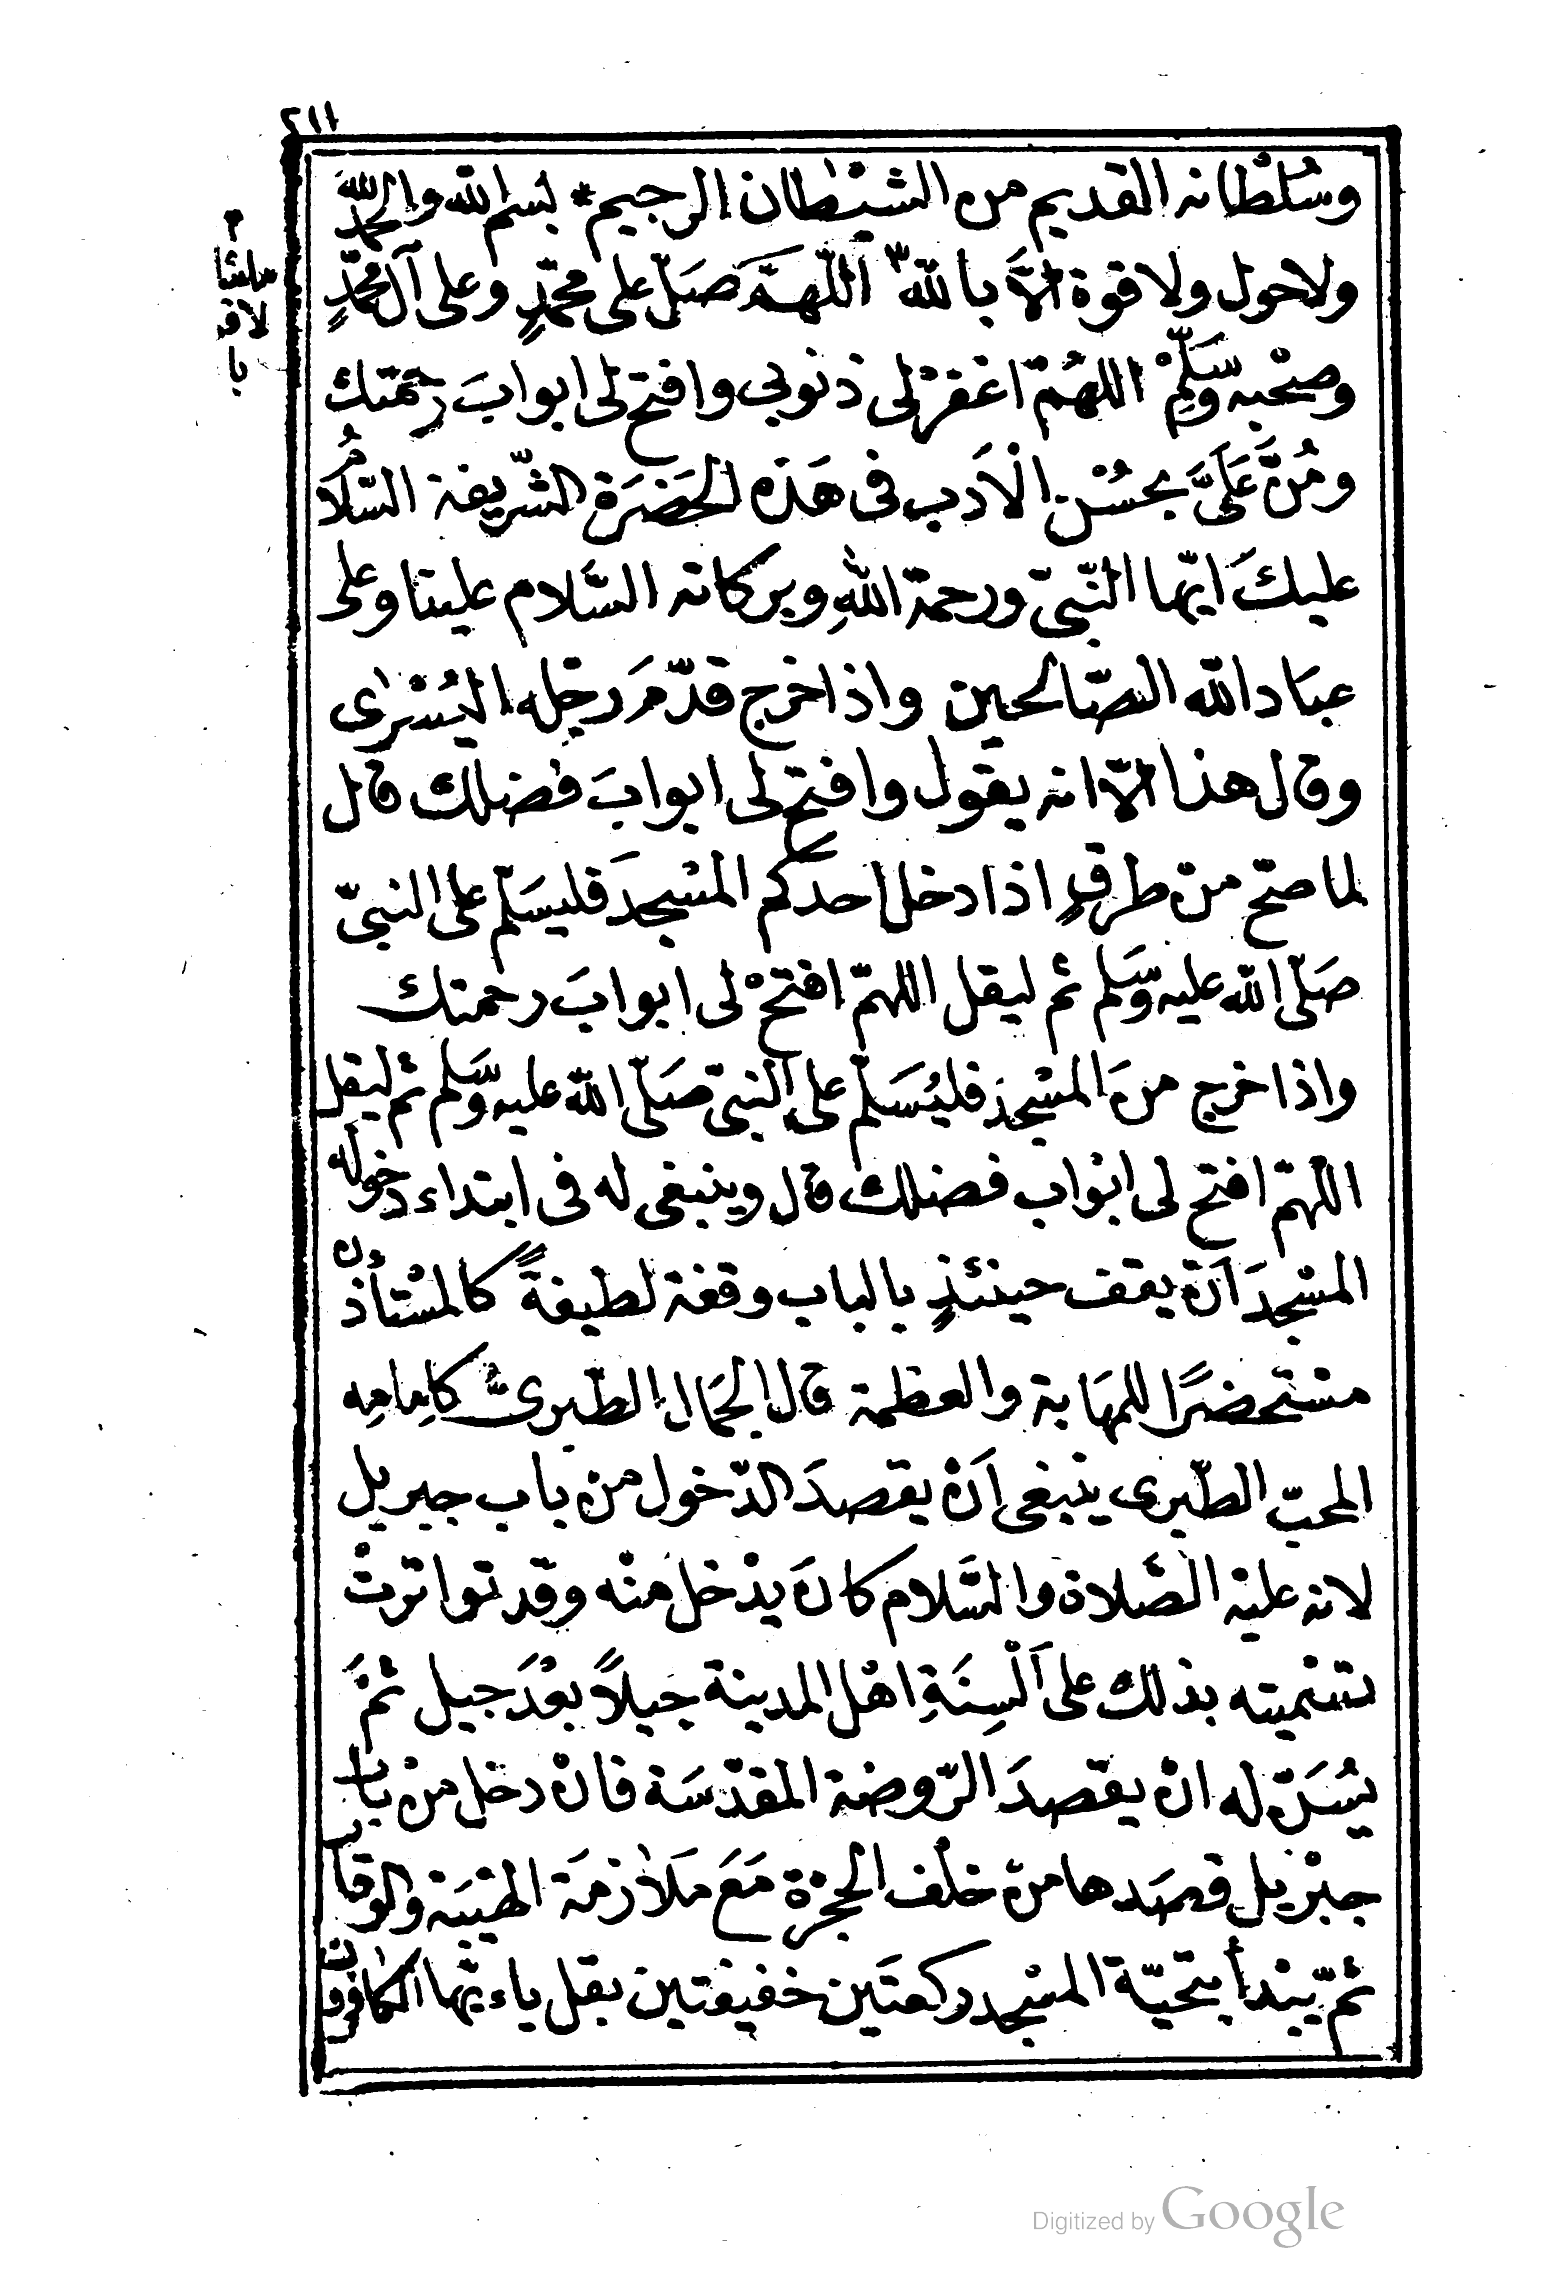 ٢١١
وسُلْطانه القديم من الشيْطان الرجيم * بسْم الله والحمد لله
ولا حول ولا قوة الاَّ بالله ٣ اللّهمَّ صَلّ على محمّدٍ وعلى آل محمّدٍ
وصحْبه وسَلِّمْ اللهُمّ اغفرْ لى ذنوبي وافتح لى ابوابَ رحمتك
ومُنَّ عَلَىَّ بحسُنْ الْاَدب فى هَذه الحَضرَة الشّريفة السّلامُ
عليكَ ايّها النّبىّ ورحمة اللهِ وبركاته السَّلام علينا وعلى
عبَاد الله الصّالحين واذا خرج قدّمَ رجْله اليُسْرٰى
وقال هذا الاّ انه يقول وافتح لى ابوابَ فضلك قال
لما صحّ منْ طرقٍ اذا دخل احدكم المسْجدَ فليسَلّم على النبىّ
صَلّى الله عليه وسَّلم ثم ليقل اللهمّ افتحْ لى ابوابَ رحمتك
واذا خرج منَ المسْجد فليُسَلّم على النبىّ صَلّى الله عليه وسَّلم ثم ليقل
اللّهمّ افتح لى ابْواب فضلك قال وينبغى له فى ابتداء دخوله
المسْجدَ اَنْ يقف حينئذٍ بالباب وقفة لطيفةً كالمسْتأذن
مسْتحضرًا للمهَابة والعظمة قال الجمَال الطّبرىُّ كاِمامِه
المحبّ الطّبرى ينبغى اَنْ يقصدَ الدّخول من باب جبريل
لانه عليْه الصَّلاة والسَّلام كانَ يدْخل منْه وقد تواترتْ
تسْميته بذلك على اَلْسِنَةِ اهْل المدينة جيلاً بعْدَ جيل ثمَّ
يُسَنّ له انْ يقصدَ الرّوضة المقدّسَة فانْ دخل منْ باب
جبْريل قصَدها منْ خلْف الحجْرة مَعَ مَلاٰزمَة الهيْبَة والوقار
ثمّ يبْدأ بتحيّة المسْجد ركعتَين خفيفتين بقل ياءيّها الكٰافرون
٣
ماشا
لاقو
با